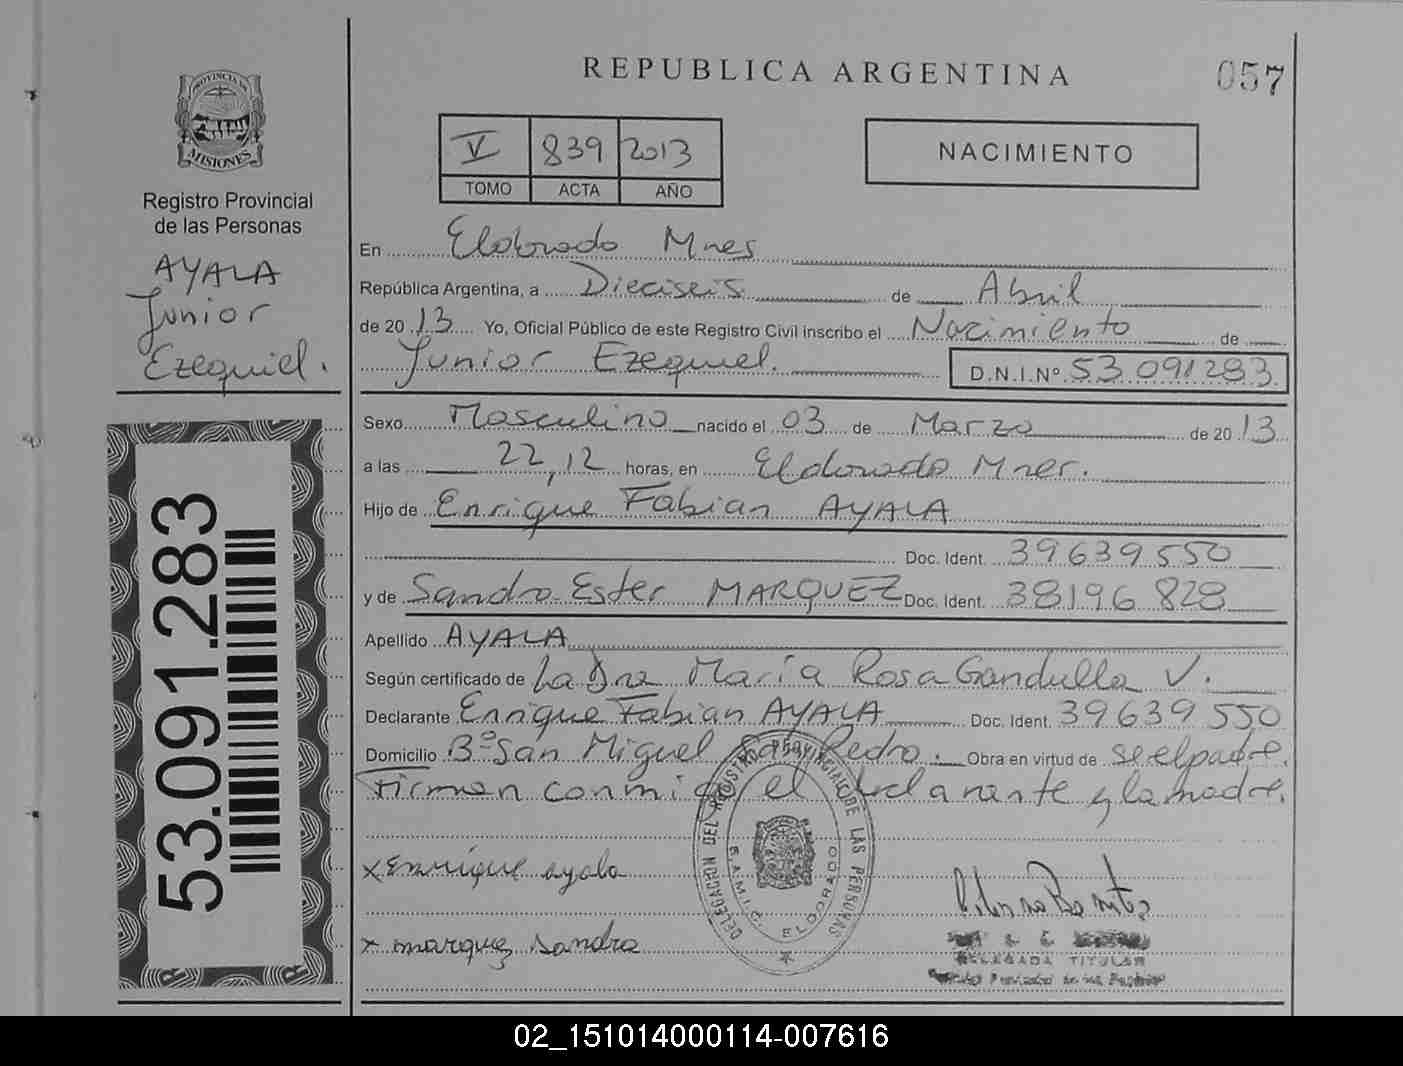 REPUBLICA ARGENTINA
057
PROVINCIA DE
MISIONES
Registro Provincial
de las Personas
AYALA
Junior
Ezequiel.
53.091.283
V 839 2013
TOMO ACTA AÑO
NACIMIENTO
En Eldorado Mnes
República Argentina, a Dieciseis de Abril
de 2013 Yo, Oficial Público de este Registro Civil inscribo el Nacimiento de
Junior Ezequiel. D.N.I.Nº 53 091283
Sexo Masculino nacido el 03 de Marzo de 2013
a las 22,12 horas, en Eldorado Mnes.
Hijo de Enrique Fabian AYALA
Doc. Ident. 39639550
y de Sandra Ester MARQUEZ Doc. Ident. 38196828
Apellido AYALA
Según certificado de La Dra María Rosa Gandulla V.
Declarante Enrique Fabian AYALA Doc. Ident. 39639550
Domicilio Bº San Miguel Pedro. Obra en virtud de se el padre.
Firman conmigo el declarante y la madre.
x Enrique ayala
x marquez sandra
DELEGACION DEL REGISTRO PROVINCIAL DE LAS PERSONAS
S.A.M.I.C. ELDORADO
DELEGADA TITULAR
02_151014000114-007616